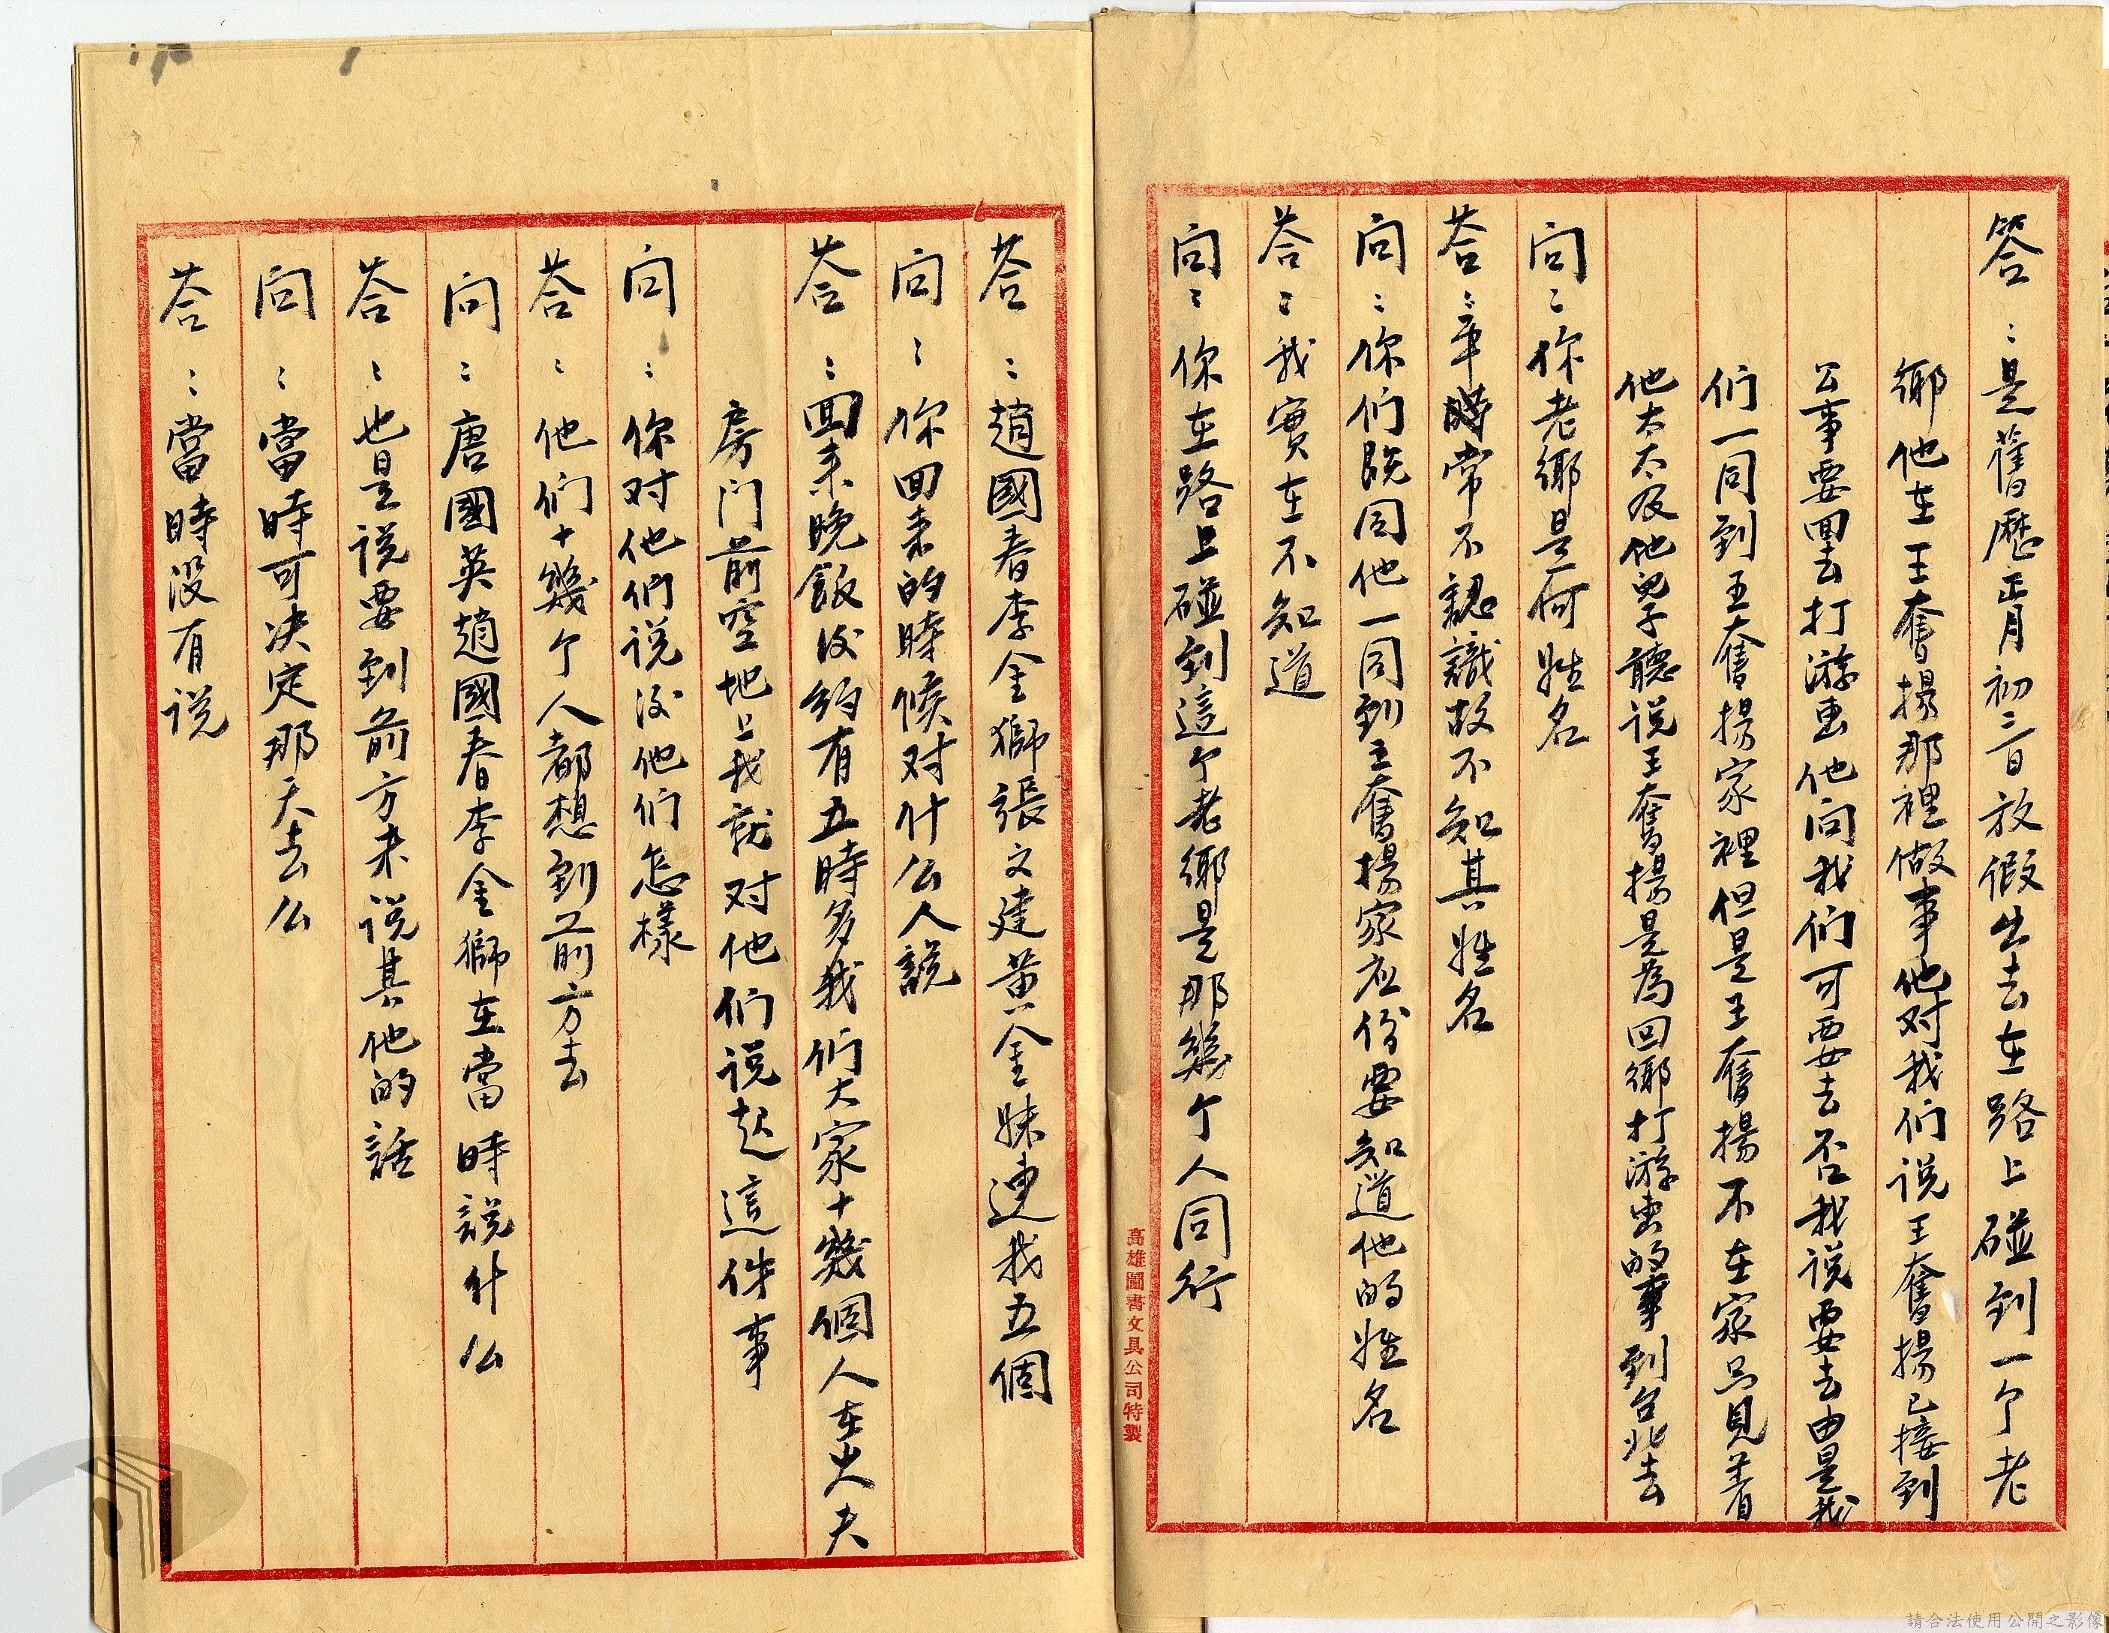 答：是舊歷正月初二日放假出去在路上碰到一个老
鄉他在王奮揚那裡做事他对我们说王奮揚已接到
公事要回去打游击他问我们可要去否我说要去由是我
们一同到王奮揚家裡但是王奮揚不在家只見着
他太太及他兒子聽说王奮揚是為回鄉打游击的事到台北去
问：你老鄉是何姓名
荅：平時常不認識故不知其姓名
问：你们既同他一同到王奮揚家应份要知道他的姓名
荅：我實在不知道
问：你在路上碰到這个老鄉是那幾个人同行
高雄圖書文具公司特製
荅：趙國春李金獅張文建黄金妹連我五個
问：你回来的時候对什么人説
荅：回来晚飯後約有五時多我们大家十幾個人在火夫
房门前空地上我就对他们说起這件事
问：你对他們说後他们怎樣
荅：他们十幾个人都想到前方去
问：唐國英趙國春李金獅在當時説什么
荅：也是说要到前方来说其他的話
问：當時可决定那天去么
荅：當時没有说
請合法使用公開之影像